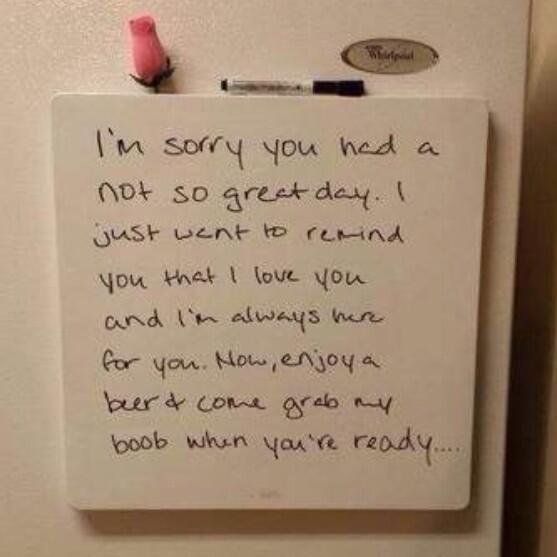 Whirlpool
I'm sorry you had a
not so great day. I
just want to remind
you that I love you
and I'm always here
for you. Now, enjoy a
beer & come grab my
boob when you're ready....